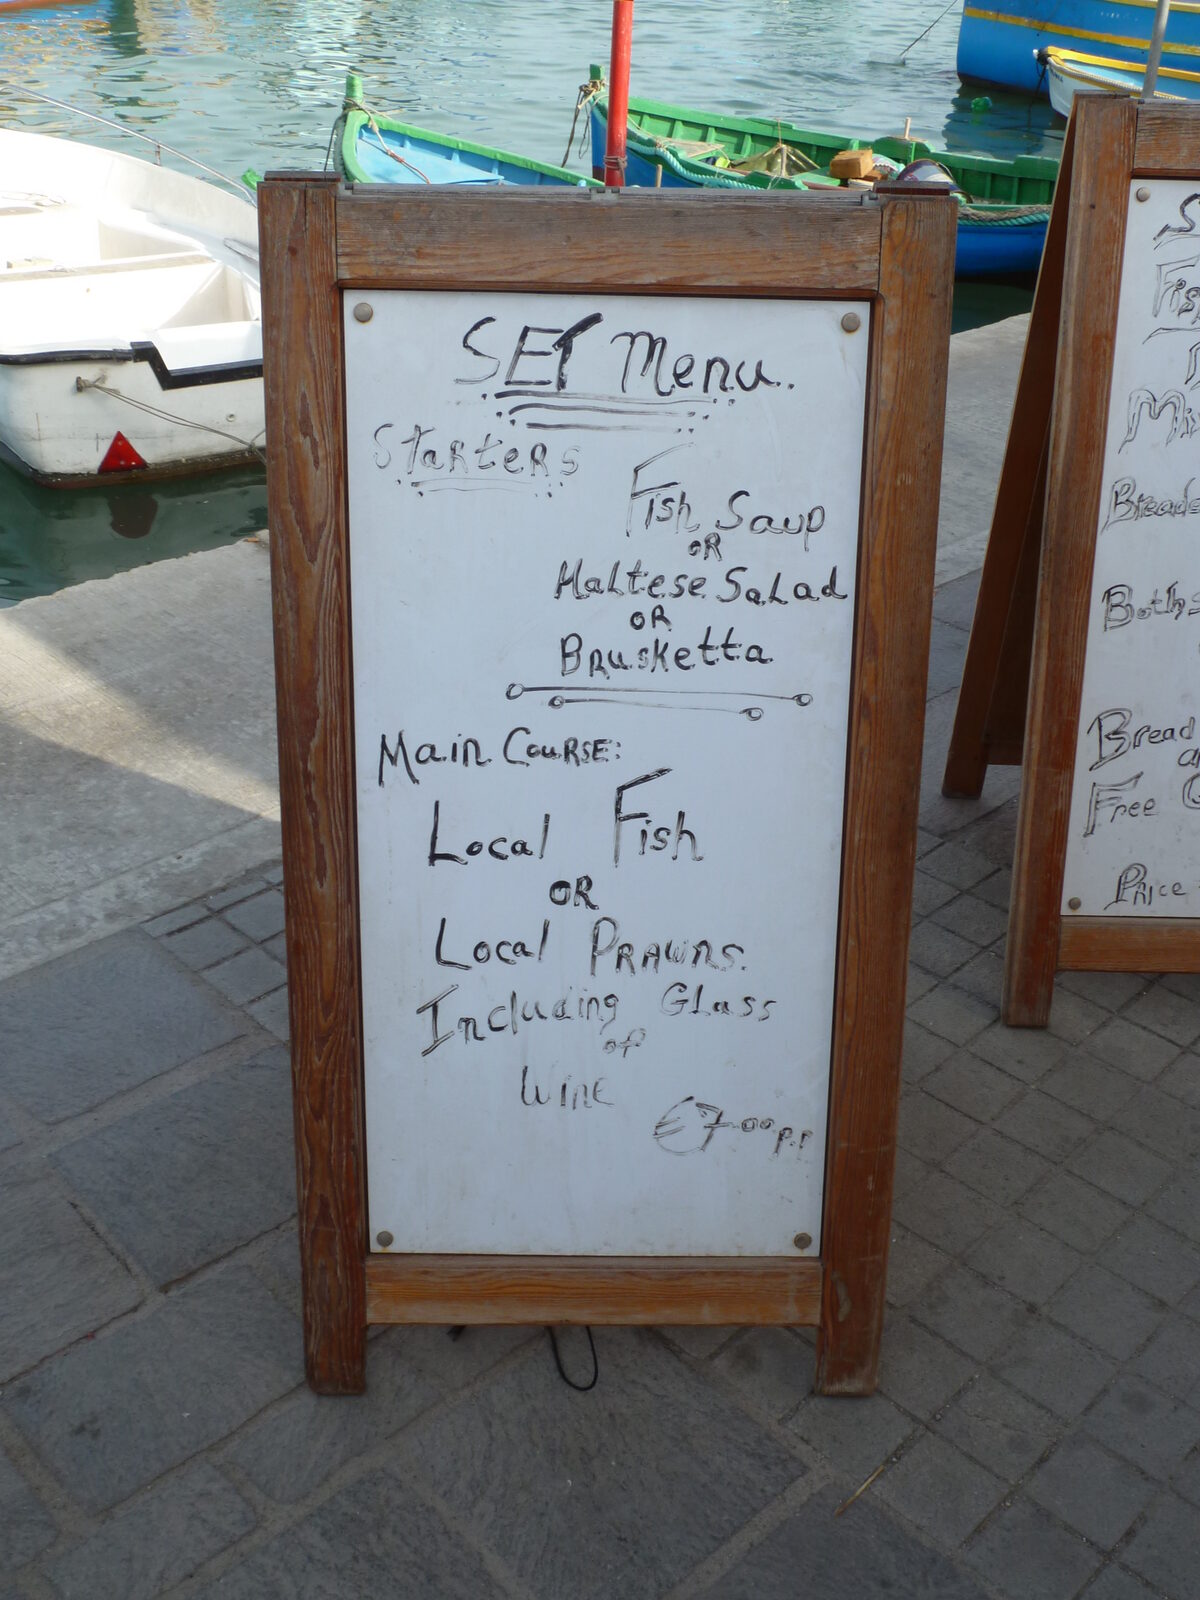 SET Menu.
Starters
Fish Soup
OR
Maltese Salad
OR
Brusketta
Main Course:
Local Fish
OR
Local Prawns.
Including Glass
of
Wine
€7.00 p.p
Bread
Free
Price